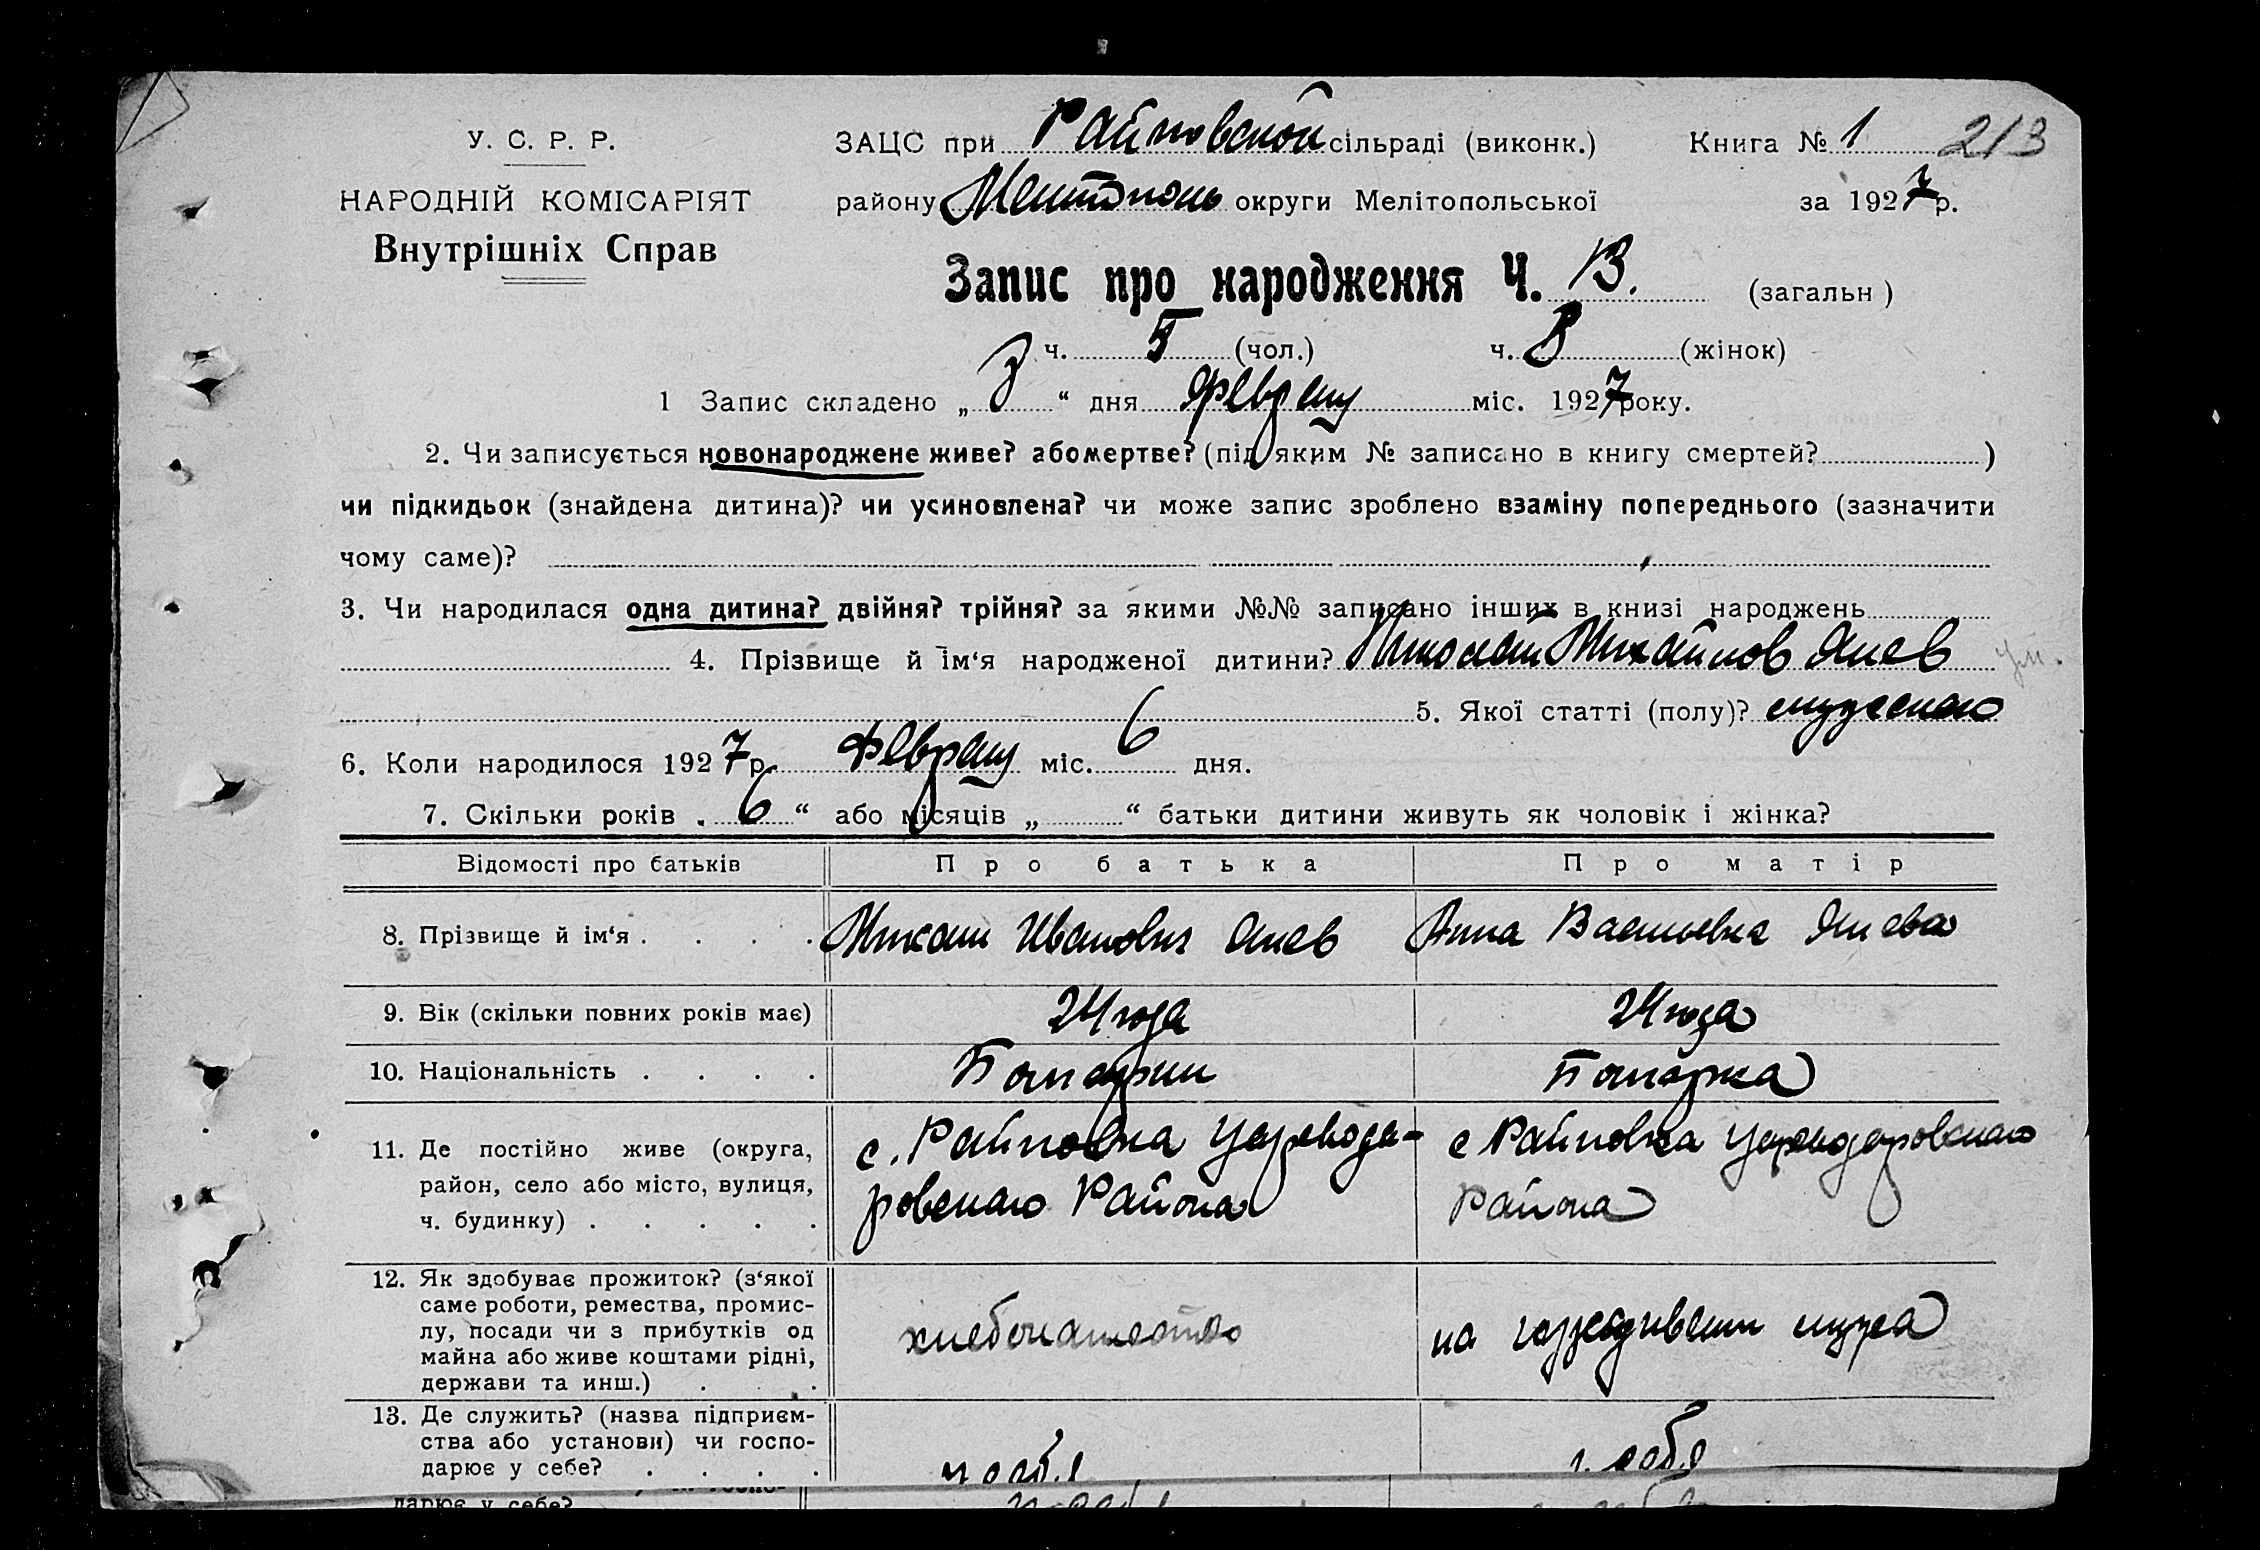 У. С. Р. Р.
НАРОДНІЙ КОМІСАРІЯТ
Внутрішніх Справ
ЗАЦС при Райновской сільраді (виконк.) Книга № 1 213
району округи Мелітопольської за 1927 р.
Запис про народження Ч. 13. (загальн )
ч. 5 (чол.) ч. 8 (жінок)
1 Запис складено „ “ дня Февраля міс. 1927 року.
2. Чи записується новонароджене живе? або мертве? (під яким № записано в книгу смертей? )
чи підкидьок (знайдена дитина)? чи усиновлена? чи може запис зроблено взаміну попереднього (зазначити
чому саме)?
3. Чи народилася одна дитина? двійня? трійня? за якими №№ записано інших в книзі народжень
4. Прізвище й ім‘я народженої дитини? Николай Михайлов Ялев ум.
5. Якої статті (полу)? мужского
6. Коли народилося 1927 р. Февраля міс. 6 дня.
7. Скільки років „ 6 “ або місяців „ “ батьки дитини живуть як чоловік і жінка?
Відомості про батьків Про батька Про матір
8. Прізвище й ім‘я . . . . Михаил Иванович Ялев Анна Васильевна Ялева
9. Вік (скільки повних років має) 24 года 24 года
10. Національність . . . . Болгарин Болгарка
11. Де постійно живе (округа,
район, село або місто, вулиця,
ч. будинку) . . . . .
с. Райновка Царевода-
ровского Района
с Райновка Цареводаровского
Района
12. Як здобуває прожиток? (з‘якої
саме роботи, ремества, промис-
лу, посади чи з прибутків од
майна або живе коштами рідні,
держави та инш.) . . .
хлебопашество
на иждивении мужа
13. Де служить? (назва підприєм-
ства або установи) чи госпо-
дарює у себе? . . . .
у себя
у себя
дарює у себе?